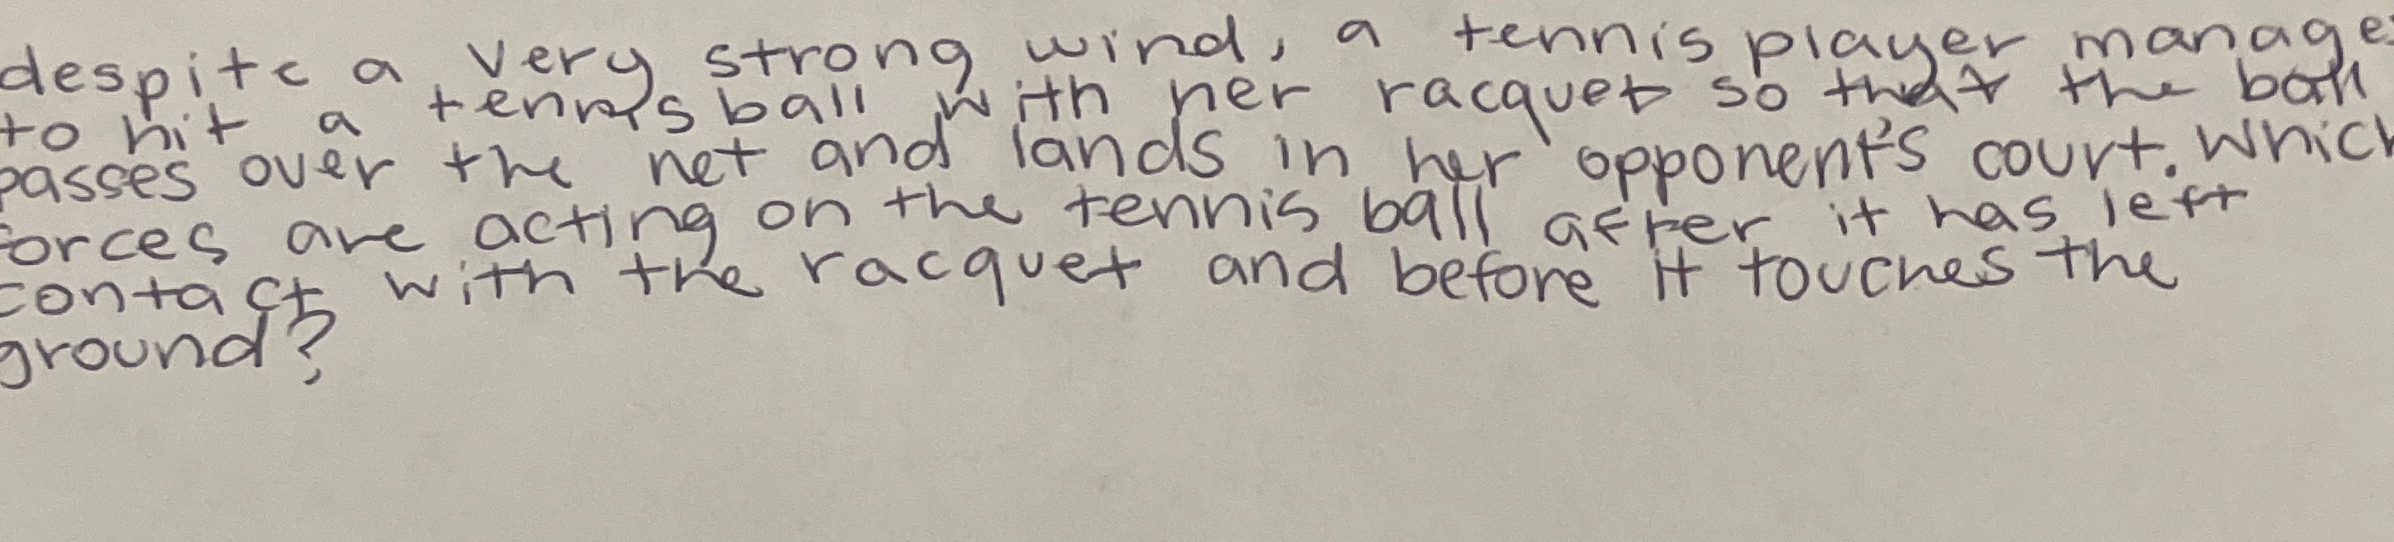 despite a very strong wind, a tennis player manage
to hit a tennis ball with her racquet so that the ball
passes over the net and lands in her opponent's court. Which
forces are acting on the tennis ball after it has left
contact with the racquet and before it touches the
ground?